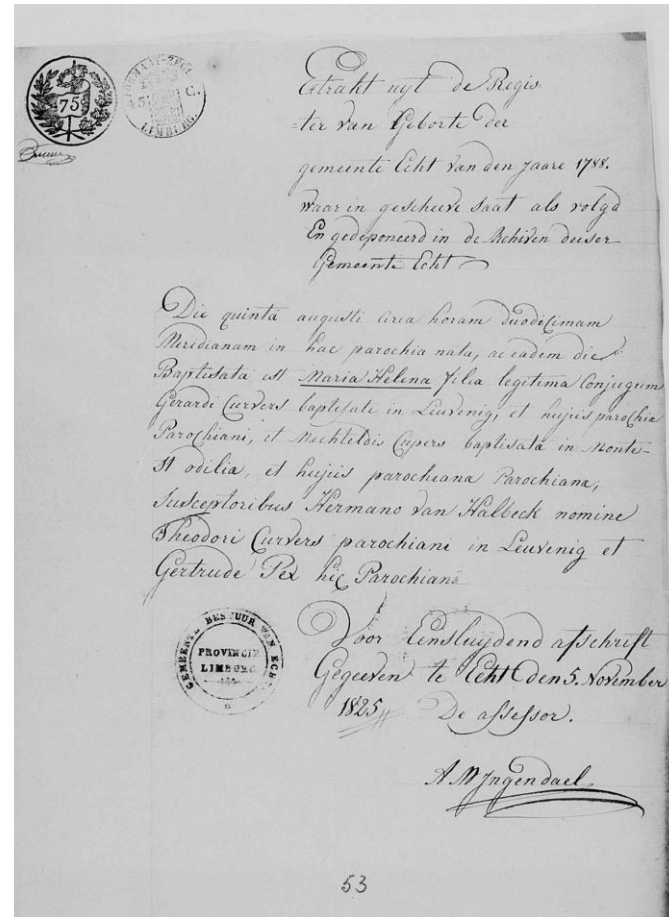 75
LIMBURG.
Extrakt uyt de Regis
=ter van Geborte der
gemeente Echt van den jaare 1788.
waar in gescheeve staat als volgd
En gedeponeerd in de Archiven deeser
Gemeente Echt
Die quinta augusti circa horam duodecimam
Meridianam in hac parochia nata, ac eadem die
Baptisata est Maria Helena filia legitima Conjugum
Gerardi Curvers baptisati in Leuvenig, et hujus parochia
Parochiani, et Mechtildis Cupers baptisata in Monte-
St odilia, et hujus parochiana Parochiana,
Susceptoribus Hermano van Halbeck nomine
Theodori Curvers parochiani in Leuvenig et
Gertrude Pex hic Parochiana
GEMEENTE BESTUUR VAN ECHT
PROVINCIE
LIMBURG
Voor Eensluydend afschrift
Gegeeven te Echt den 5. November
1825 De assessor.
A M Jngendael.
53